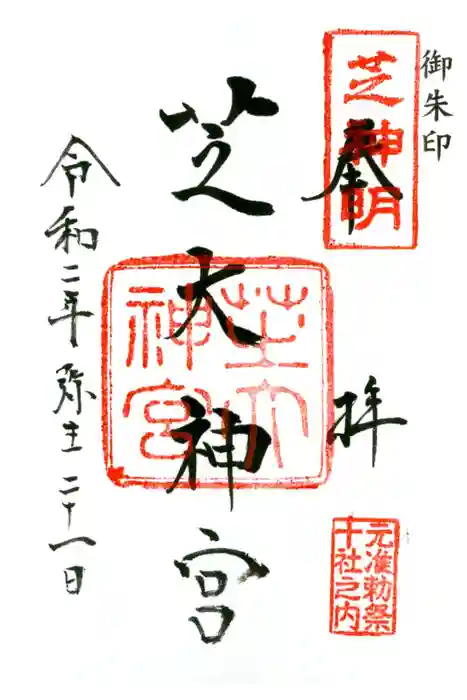 御朱印
芝神明
奉拝
元准勅祭
十社之内
芝大神宮
芝大
神宮
令和二年 弥生 二十一日